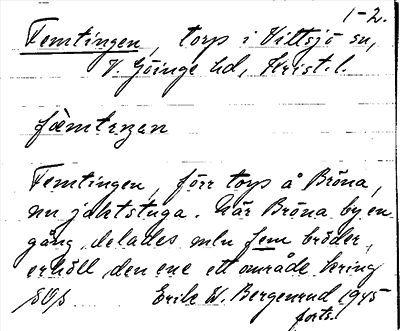 1-2.
Femtingen, torp i Vittsjö sn,
V. Göinge hd, Krist. l.
fèmtıŋən
Femtingen, förr torp å Bröna,
nu jaktstuga. När Bröna by en
gång delades mln fem bröder,
erhöll den ene ett område kring
Erik W. Bergenrud 1945
forts.